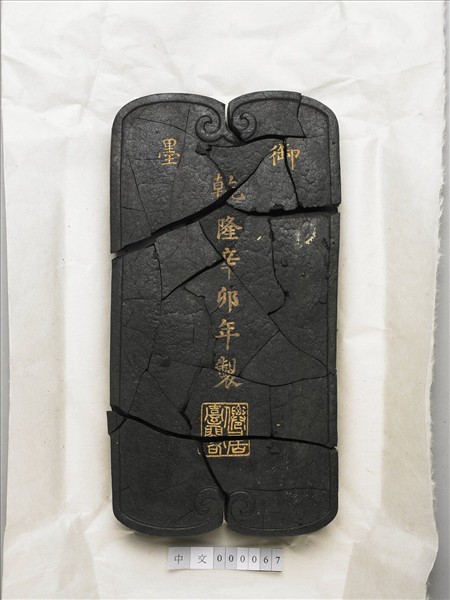 御墨
乾隆辛卯年製
中文000067